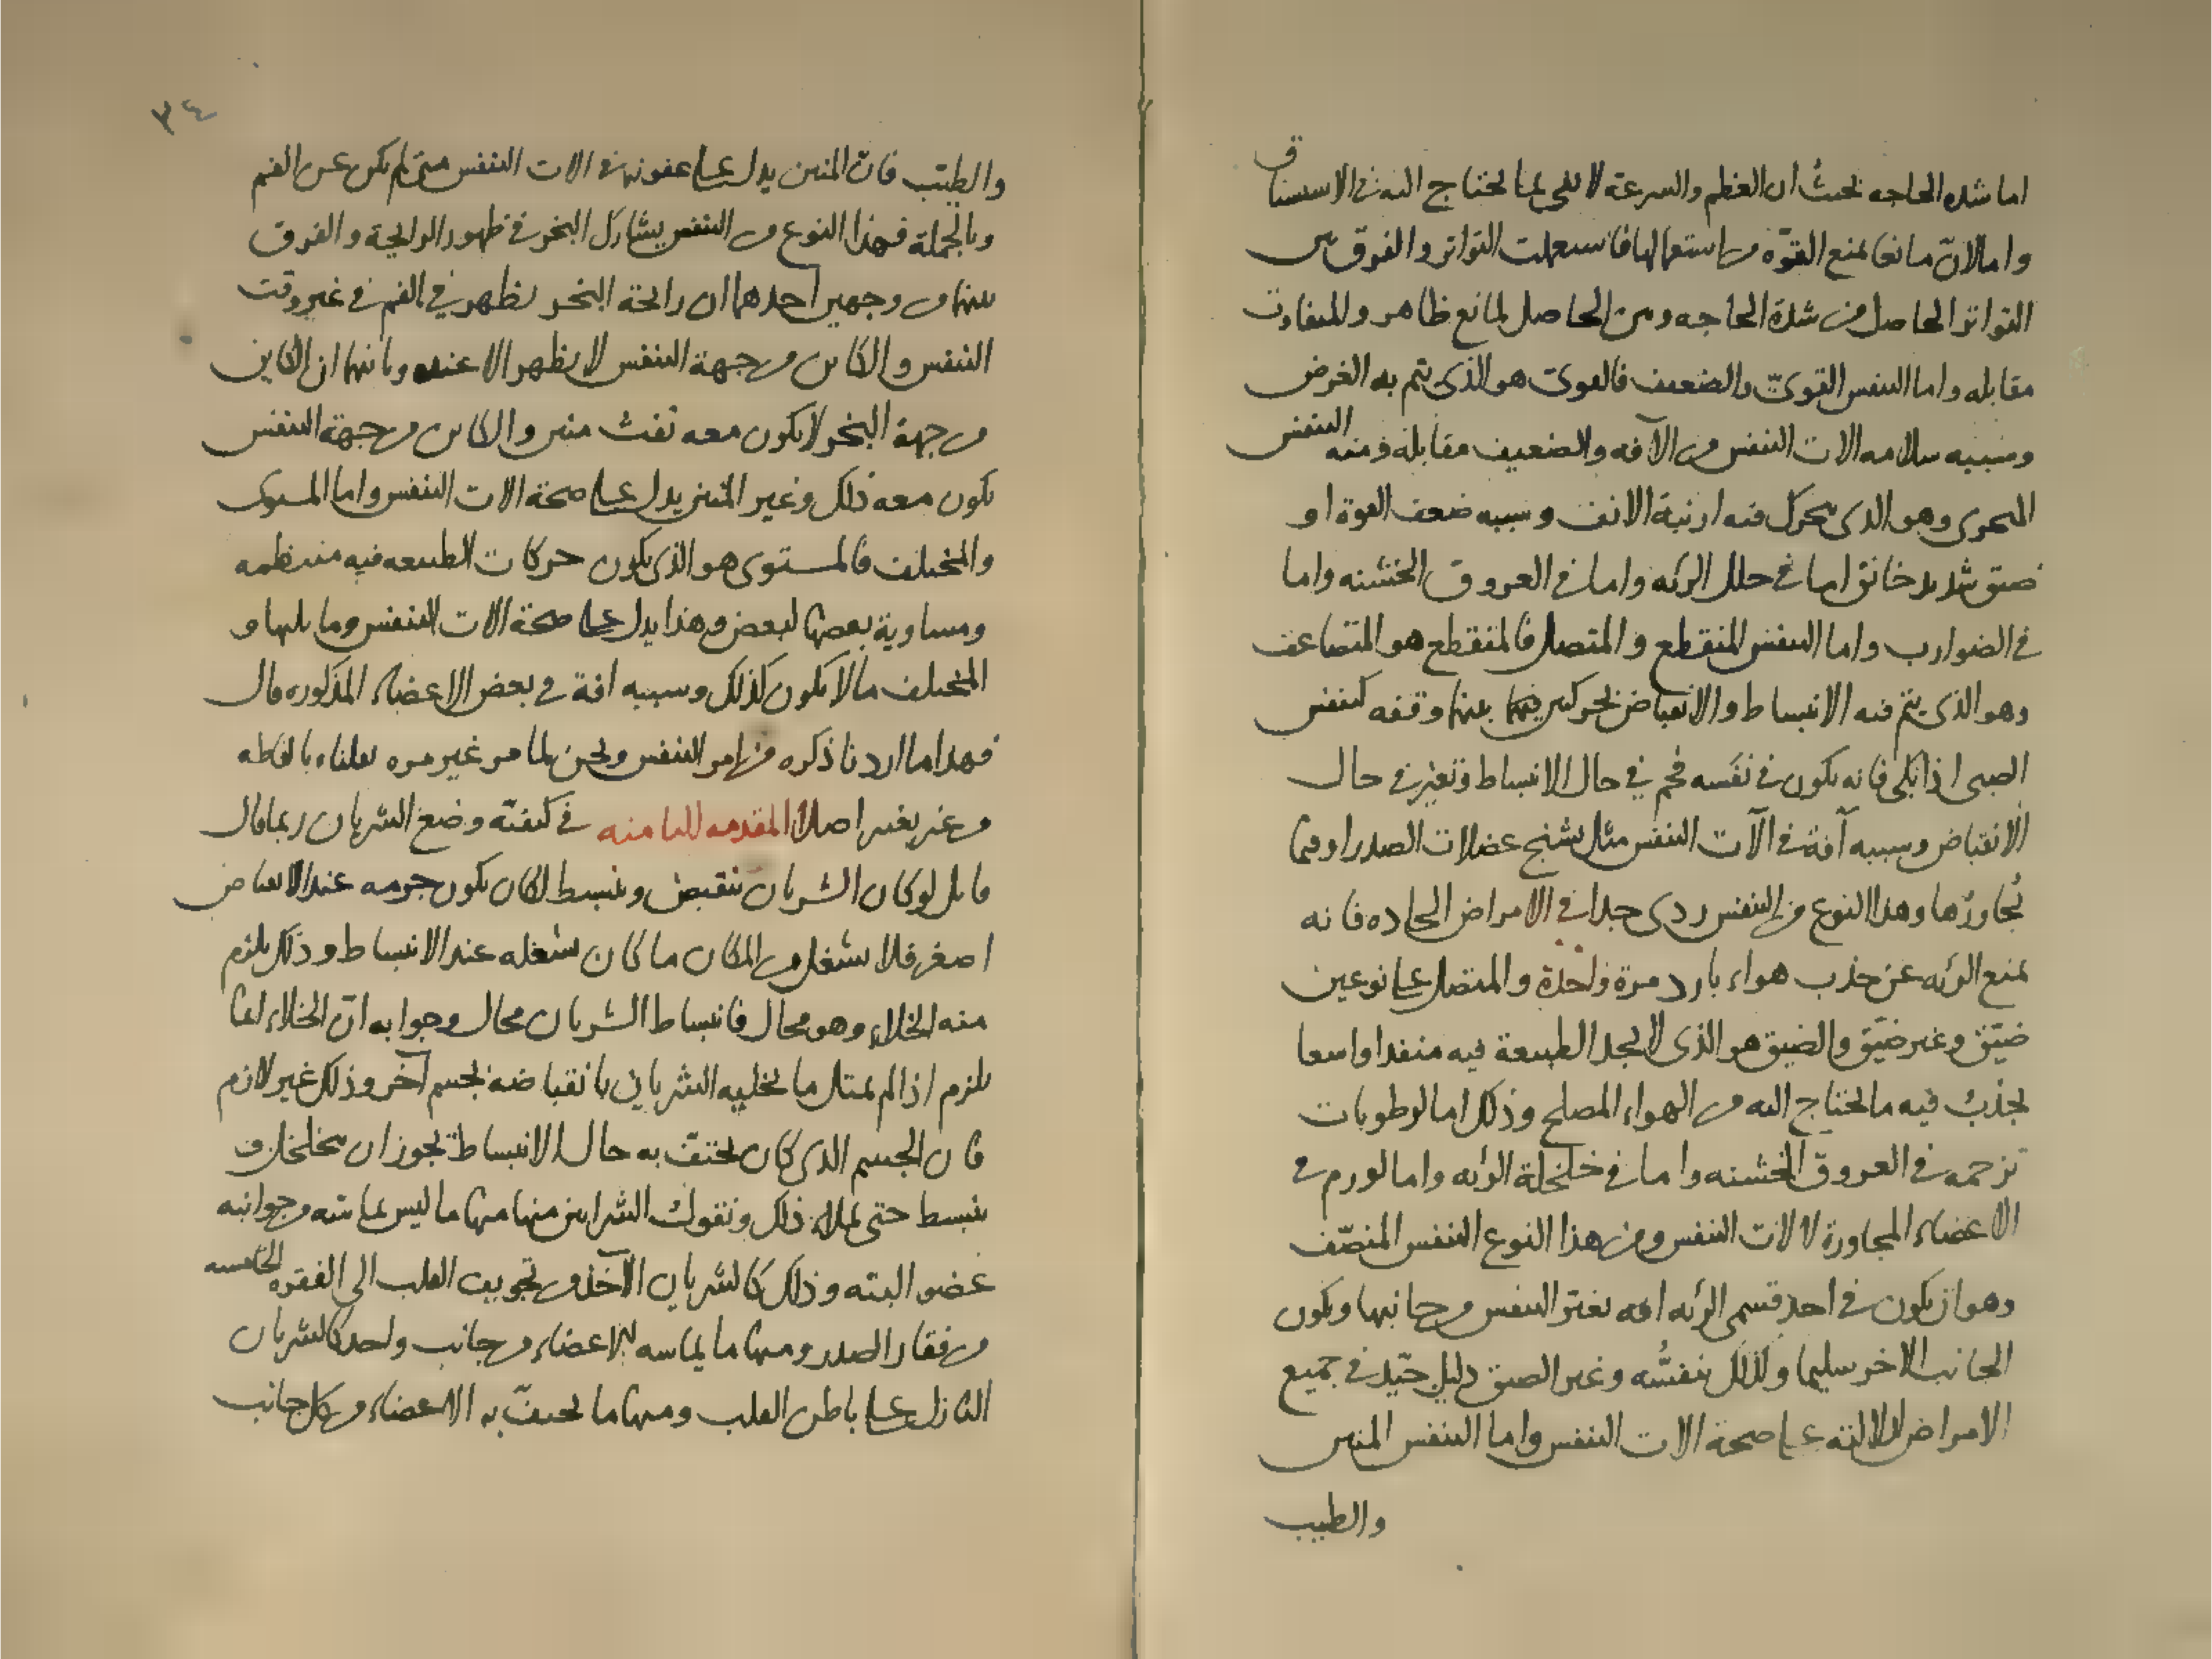 اما شده الحاجه بحيث ان العظم والسرعة لا يفى بما يحتاج اليه فى الاستنشاق
واما لان مانعا يمنع القوّة من استعمالها فاستعملت التواتر والفرق بين
التواتر الحاصل من شدة الحاجه ومن الحاصل لمانع ظاهر والمتفاوت
مقابله واما التنفس القوىّ والضعيف فالقوى هو الذى يتم به الغرض
وسببه سلامه الات التنفس من الآفه والضعيف مقابله ومنه التنفس
المنخرى وهو الذى يتحرك فيه ارنبة الانف وسببه ضعف القوة او
ضيق شديد خانق اما فى خلل الرئه واما فى العروق الخشنه واما
فى الضوارب واما التنفس المنقطع والمتصل فالمنقطع هو المتضاعف
وهو الذى يتم فيه الانبساط والانقباض بحركتين بينهما وقفه كتنفس
الصبى اذا بكى فانه يكون فى نفَسه فحم فى حال الانبساط وتغير فى حال
الانقباض وسببه آفة فى الآت التنفس مثل تشنج عضلات الصدر او فيما
يُجاورُها وهذا النوع من التنفس ردى جدا فى الامراض الحاده فانه
يمنع الرئه عن جذب هواء بارد مرة واحدة والمتصل على نوعين
ضيّق وغير ضيّق والضيق هو الذى لا يجد الطبيعة فيه منفدا واسعا
يجذبُ فيه ما يحتاج اليه من الهواء المصلح وذلك اما لرطوبات
تزحمه فى العروق الخشنه واما فى خلخلة الرئه واما لورم فى
الاعضاء المجاورة لالات التنفس ومن هذا النوع التنفس المنصّف
وهو ان يكون فى احد قسمى الرئه افه تغير التنفس من جانبها ويكون
الجانب الاخر سليما ولذلك تنفسُّه وغير الضيق دليل جيّد فى جميع
الامراض لدلالته على صحة الات التنفس واما التنفس المنتن
والطيب
٣٤
والطيّب فانّ المنتن يدل على عفونه فى الات التنفس متى لم يكن عن الفم
وبالجملة فهذا النوع من التنفس يشارك البخر فى ظهور الرايحة والفرق
بينهما من وجهين احدهما ان رائحة البخر يظهر فى الفم فى غير وقت
التنفس والكاين من جهة التنفس لا يظهر الا عنده وثانيها ان الكاين
من جهة البخر لا يكون معه نفث منتن والكاين من جهة التنفس
يكون معه ذلك وغير المنتن يدل على صحة الات التنفس واما المستوى
والمختلف فالمستوى هو الذى يكون حركات الطبيعه فيه منتظمه
ومساوية بعضها لبعض وهذا يدل على صحة الات التنفس وما يليها و
المختلف ما لا يكون كذلك وسببه افة فى بعض الاعضاء المذكوره قال
فهذا ما اردنا ذكره من امر التنفس ونحن لما مر غير مره نقلناه بالفاظه
من غير تغيير اصلا المقدمه الثامنه فى كيفيّة وضع الشريان ربما قال
قايل لو كان الشريان ينقبض وينبسط لكان يكون جرمه عند الانقباض
اصغر فلا يشغل من المكان ما كان يشغله عند الانبساط وذلك يلزم
منه الخلاء وهو محال فانبساط الشريان محال وجوابه انّ الخلاء انما
يلزم اذا لم يمتل ما يخليه الشريان بانقباضه بجسم آخر وذلك غير لازم
فان الجسم الذى كان يحتفّ به حال الانبساط يجوز ان يتخلخل و
ينبسط حتى يملاء ذلك ونقول الشرايين منها ما ليس يماسّه من جوانبه
عضو البته وذلك كالشريان الآخذ من تجويف القلب الى الفقره الخامسه
من فقار الصدر ومنها ما يماسه الاعضاء من جانب واحد كالشريان
النازل على باطن القلب ومنها ما يحتفّ به الاعضاء من كل جانب